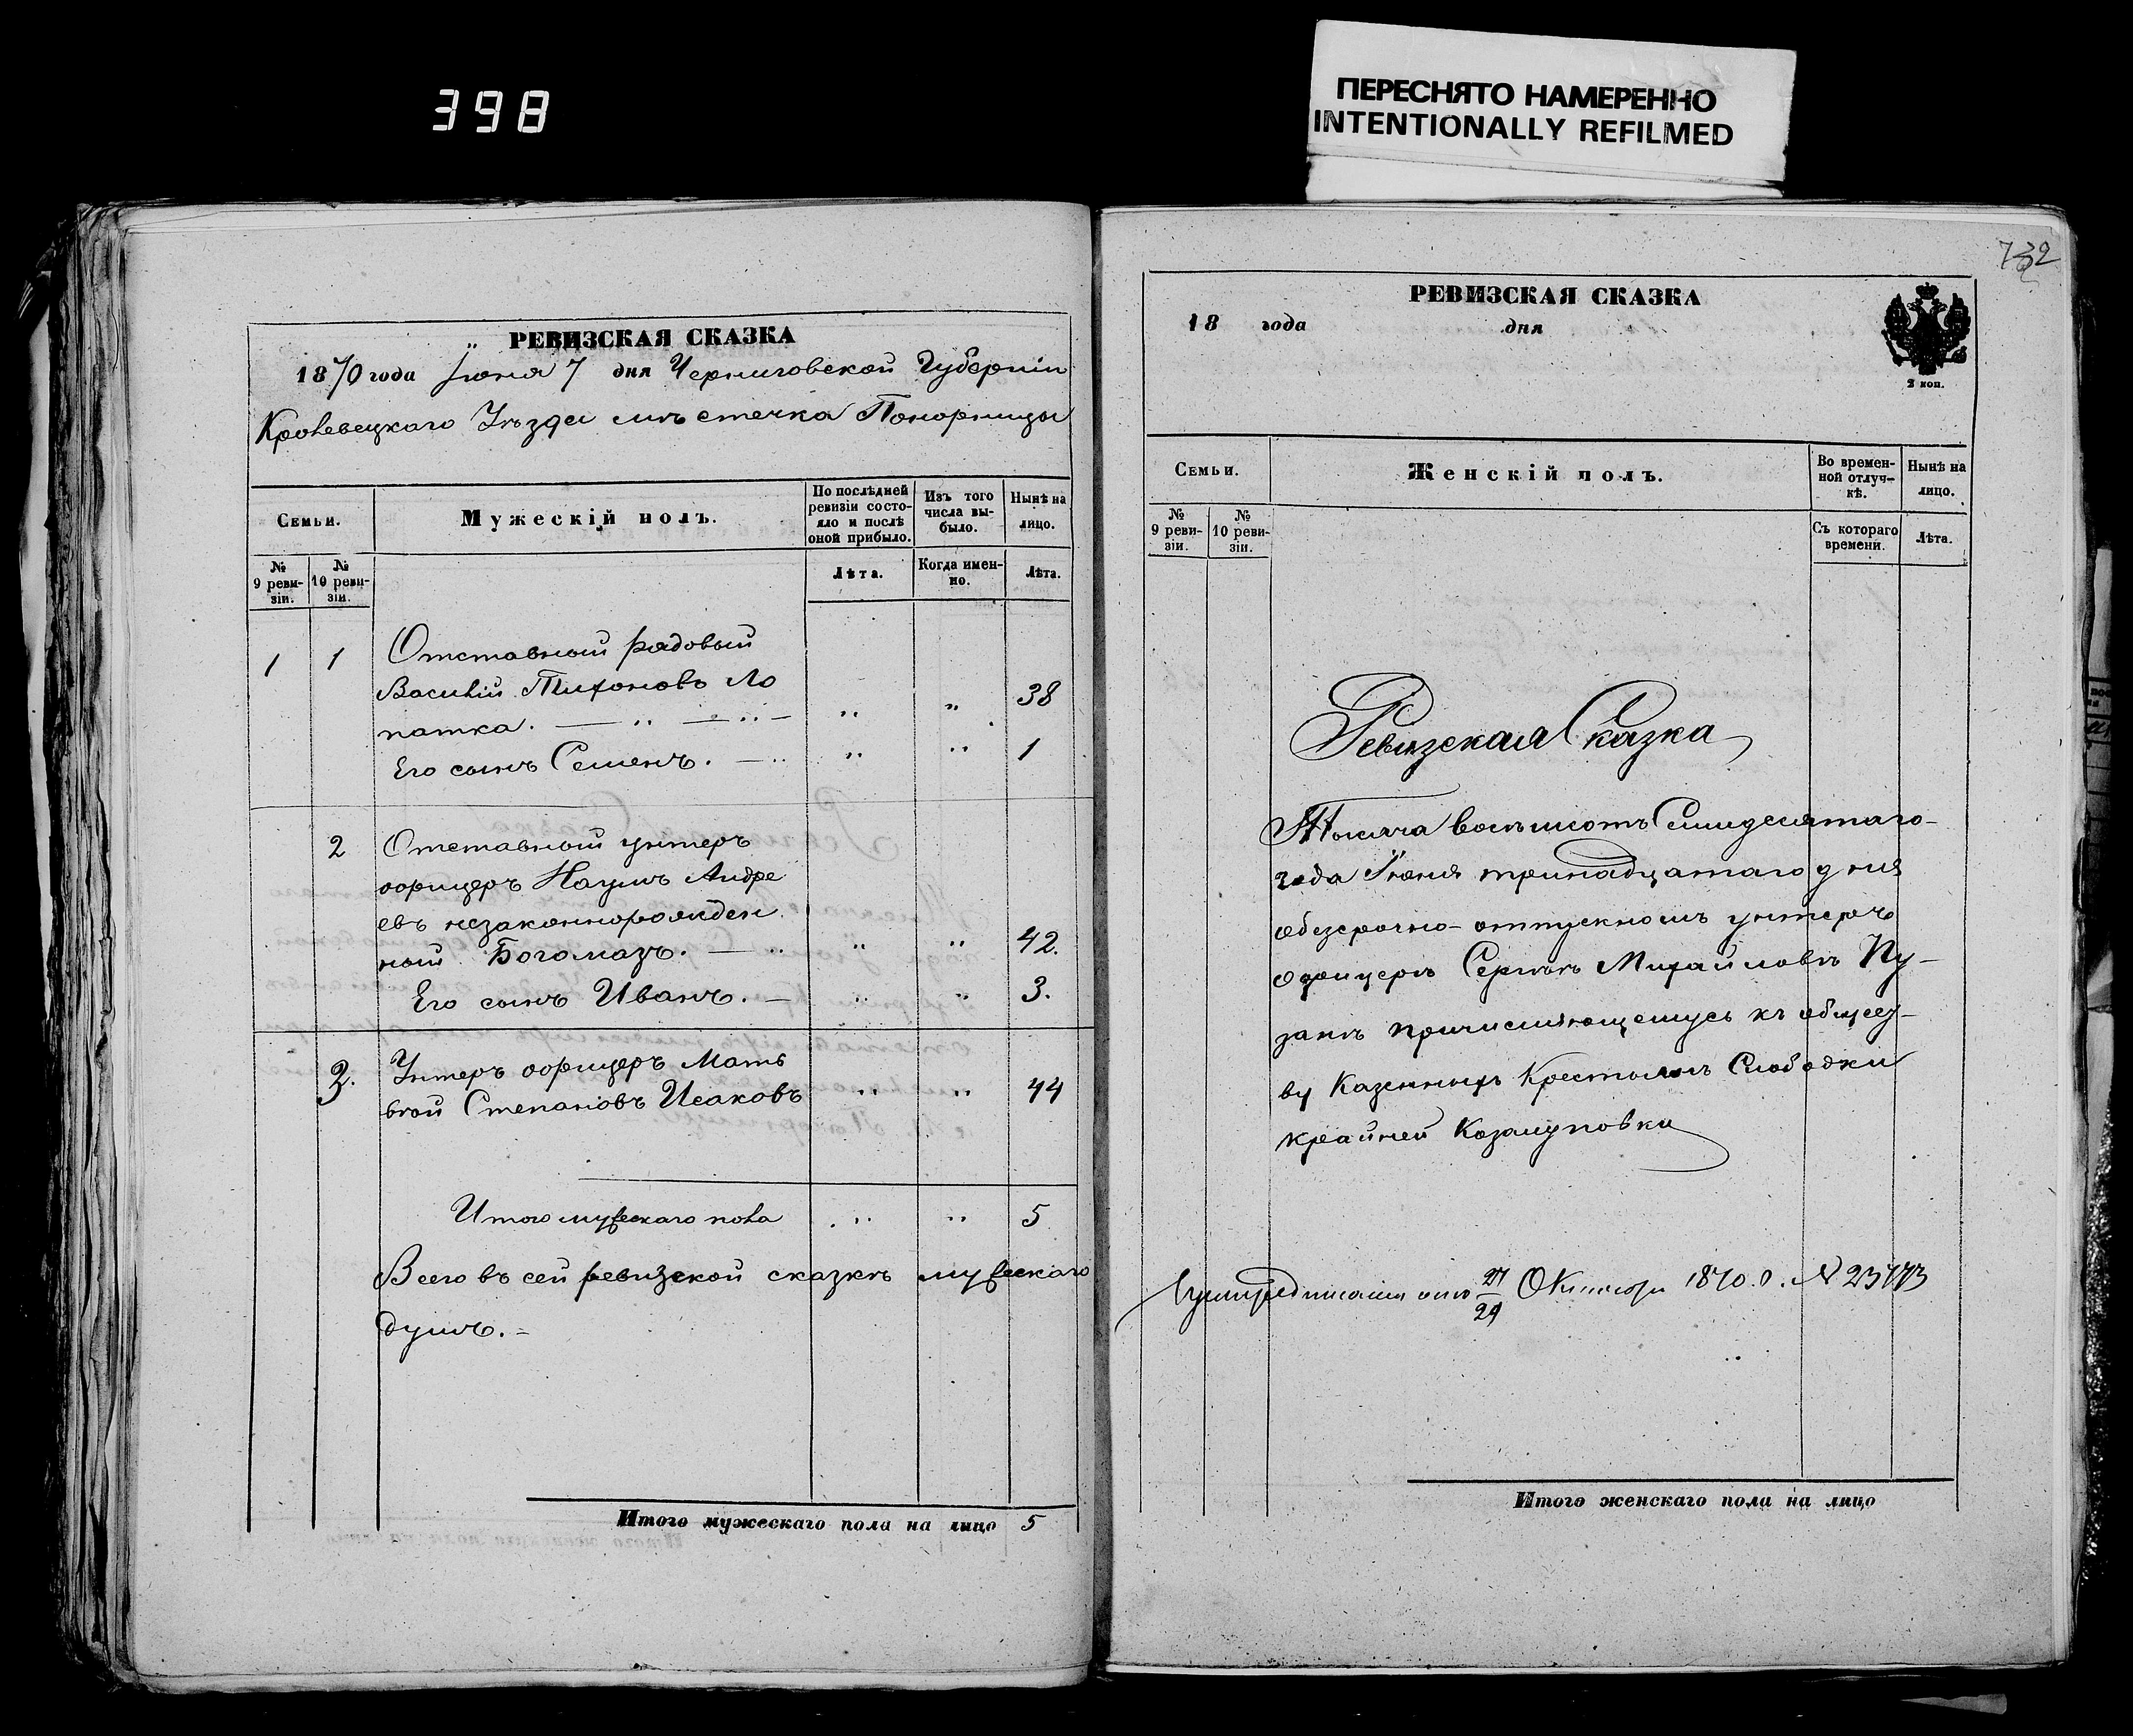 398
ПЕРЕСНЯТО НАМЕРЕННО
INTENTIONALLY REFILMED
РЕВИЗСКАЯ СКАЗКА
1870 года Іюня 7 дня Черниговской Губерніи
Кролевецкаго Уѣзда мѣстечка Понорницы
Семьи.
Мужескій полъ.
По послѣдней ревизіи состояло и послѣ оной прибыло.
Изъ того числа выбыло.
Нынѣ на лицо.
№ 9 ревизіи.
№ 10 ревизіи.
Лѣта.
Когда именно.
Лѣта.
1 1 Отставной рядовый
Василій Тихоновъ Ло
патка. „ „ 38
Его сынъ Семенъ. „ „ 1
2 Отставной унтеръ
офицеръ Наумъ Андре
евъ незаконнорожден
ный Богомазъ. „ „ 42.
Его сынъ Иванъ. „ „ 3.
3. Унтеръ офицеръ Мат
вѣй Степановъ Исаковъ „ „ 44
Итого мужескаго пола „ „ 5
Всего въ сей ревизской сказкѣ мужескаго
душъ.
Итого мужескаго пола на лицо 5
732
РЕВИЗСКАЯ СКАЗКА
18 года дня
2 коп.
Семьи.
Женскій полъ.
Во временной отлучкѣ.
Нынѣ на лицо.
№ 9 ревизіи.
№ 10 ревизіи.
Съ котораго времени.
Лѣта.
Ревизская Сказка
Тысяча восемсотъ Семидесятаго
года Іюня тринадцатаго дня
обезсрочно-отпускномъ унтеръ
офицерѣ Сергѣѣ Михайловѣ Пу-
занѣ причисляющемуся къ общест-
ву Казенныхъ Крестьянъ Слободки
крайней
Октября 1870 г. №
Итого женскаго пола на лицо